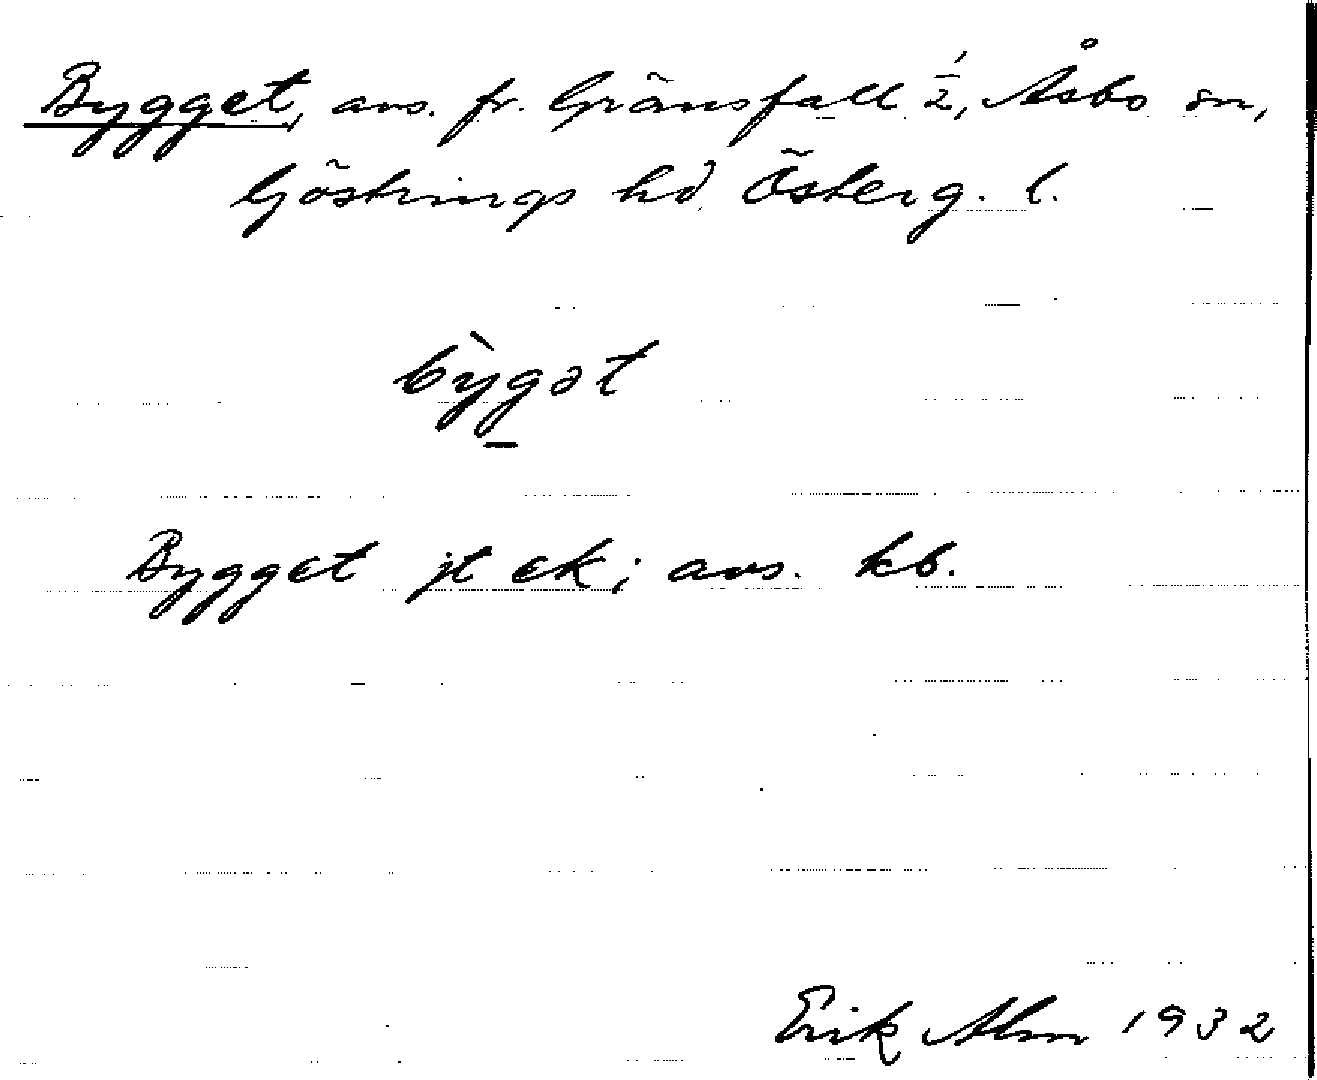 Bygget, avs. fr. Gränsfall 1/2, Åsbo sn,
Göstrings hd Österg. l.
bỳgət
Bygget jt ek; avs. kb.
Erik Alm 1932